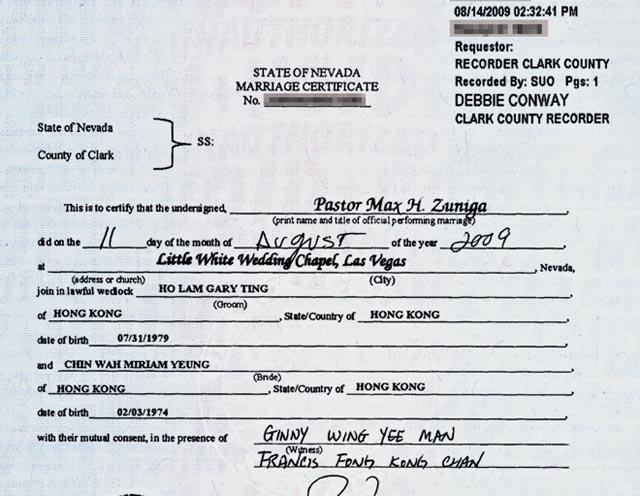 08/14/2009 02:32:41 PM
Requestor:
RECORDER CLARK COUNTY
Recorded By: SUO Pgs: 1
DEBBIE CONWAY
CLARK COUNTY RECORDER
STATE OF NEVADA
MARRIAGE CERTIFICATE
No.
State of Nevada
County of Clark
SS:
This is to certify that the undersigned, Pastor Max H. Zuniga
(print name and title of official performing marriage)
did on the 11 day of the month of AUGUST of the year 2009
at Little White Wedding Chapel, Las Vegas, Nevada,
(address or church) (City)
join in lawful wedlock HO LAM GARY TING
(Groom)
of HONG KONG, State/Country of HONG KONG
date of birth 07/31/1979
and CHIN WAH MIRIAM YEUNG
(Bride)
of HONG KONG, State/Country of HONG KONG
date of birth 02/03/1974
with their mutual consent, in the presence of GINNY WING YEE MAN
(Witness)
FRANCIS FONG KONG CHAN